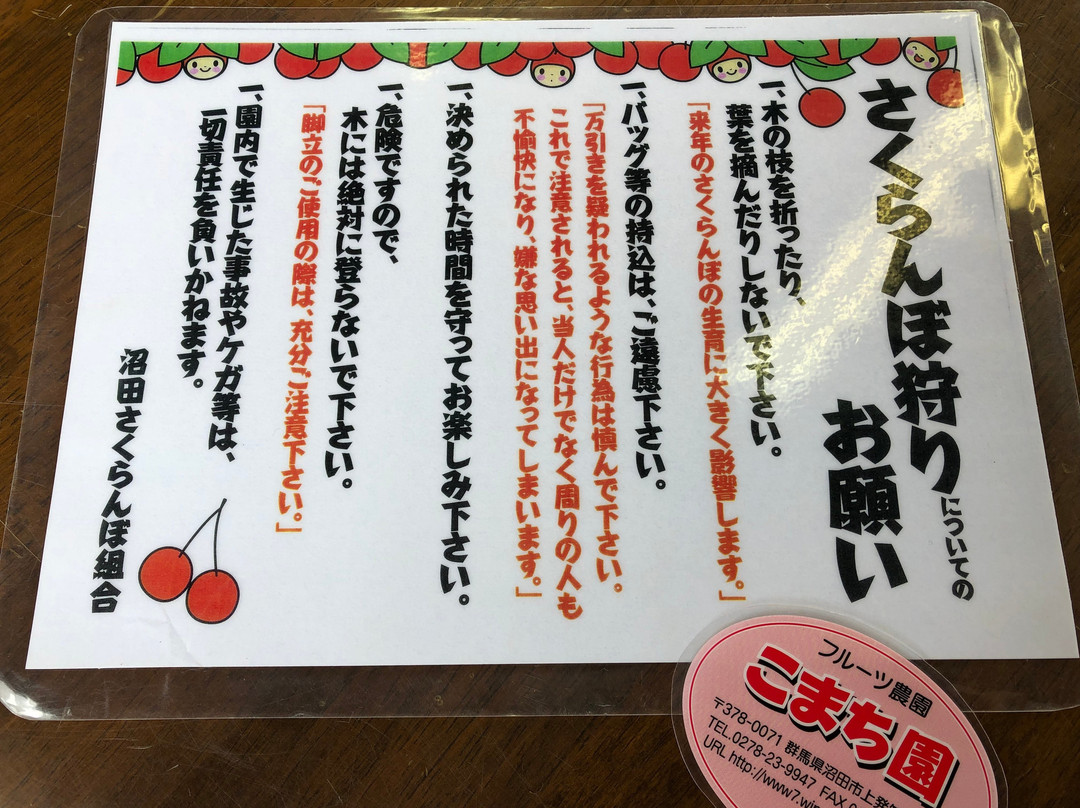 さくらんぼ狩りについての
お願い
一、木の枝を折ったり、
葉を摘んだりしないで下さい。
「来年のさくらんぼの生育に大きく影響します。」
一、バッグ等の持込は、ご遠慮下さい。
「万引きを疑われるような行為は慎んで下さい。
これで注意されると、当人だけでなく周りの人も
不愉快になり、嫌な思い出になってしまいます。」
一、決められた時間を守ってお楽しみ下さい。
一、危険ですので、
木には絶対に登らないで下さい。
「脚立のご使用の際は、充分ご注意下さい。」
一、園内で生じた事故やケガ等は、
一切責任を負いかねます。
沼田さくらんぼ組合
フルーツ農園
こまち園
〒378-0071 群馬県沼田市上発
TEL.0278-23-9947 FAX
URL http://www7.win